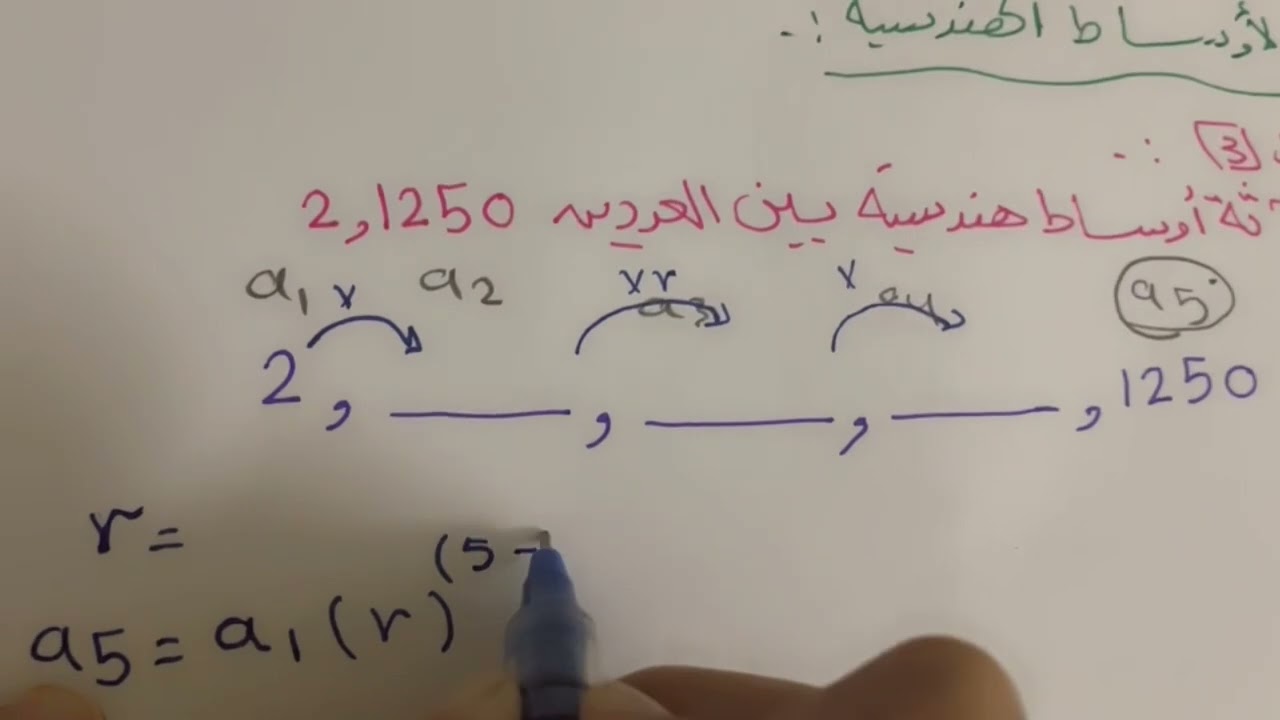 لأوساط الهندسية :.
3 :.
ثة أوساط هندسية بين العددين 2,1250
a1 x a2 xr a3 x a4 a5
2 , ____ , ____ , ____ , 1250
r =
(5 -
a5 = a1 (r)